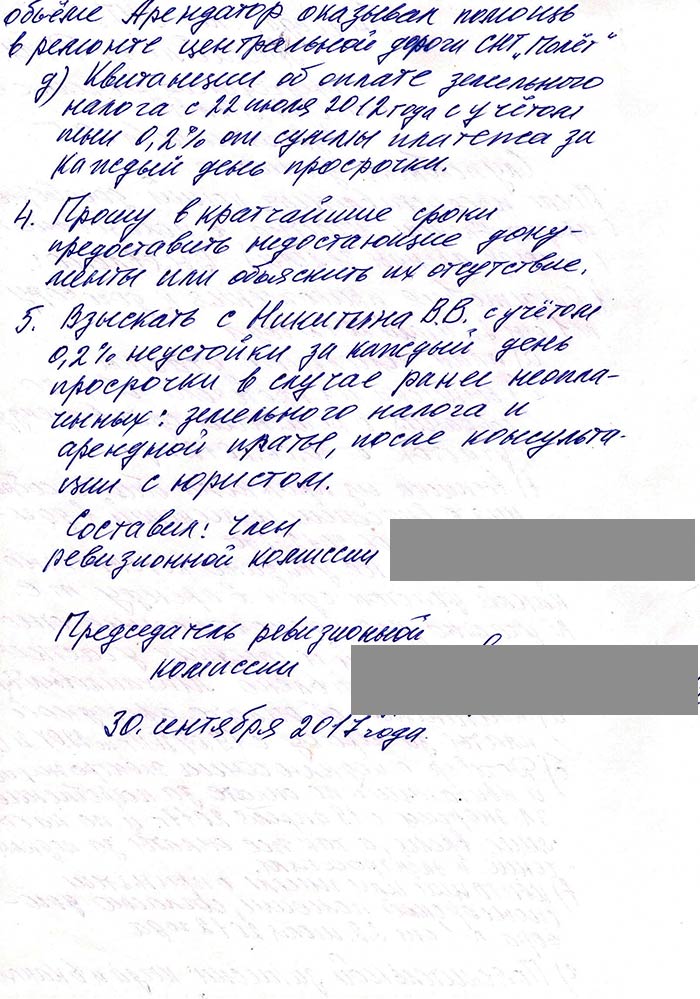 объёме Арендатор оказывал помощь
в ремонте центральной дороги СНТ „Полёт“
д) Квитанции об оплате земельного
налога с 22 июля 2012 года с учётом
пени 0,2% от суммы платежа за
каждый день просрочки.
4. Прошу в кратчайшие сроки
предоставить недостающие доку-
менты или объяснить их отсутствие.
5. Взыскать с Никитина В.В. с учётом
0,2% неустойки за каждый день
просрочки в случае ранее неопла-
ченных: земельного налога и
арендной платы, после консульта-
ции с юристом.
Составил: член
ревизионной комиссии
Председатель ревизионной
комиссии
30. сентября 2017 года.